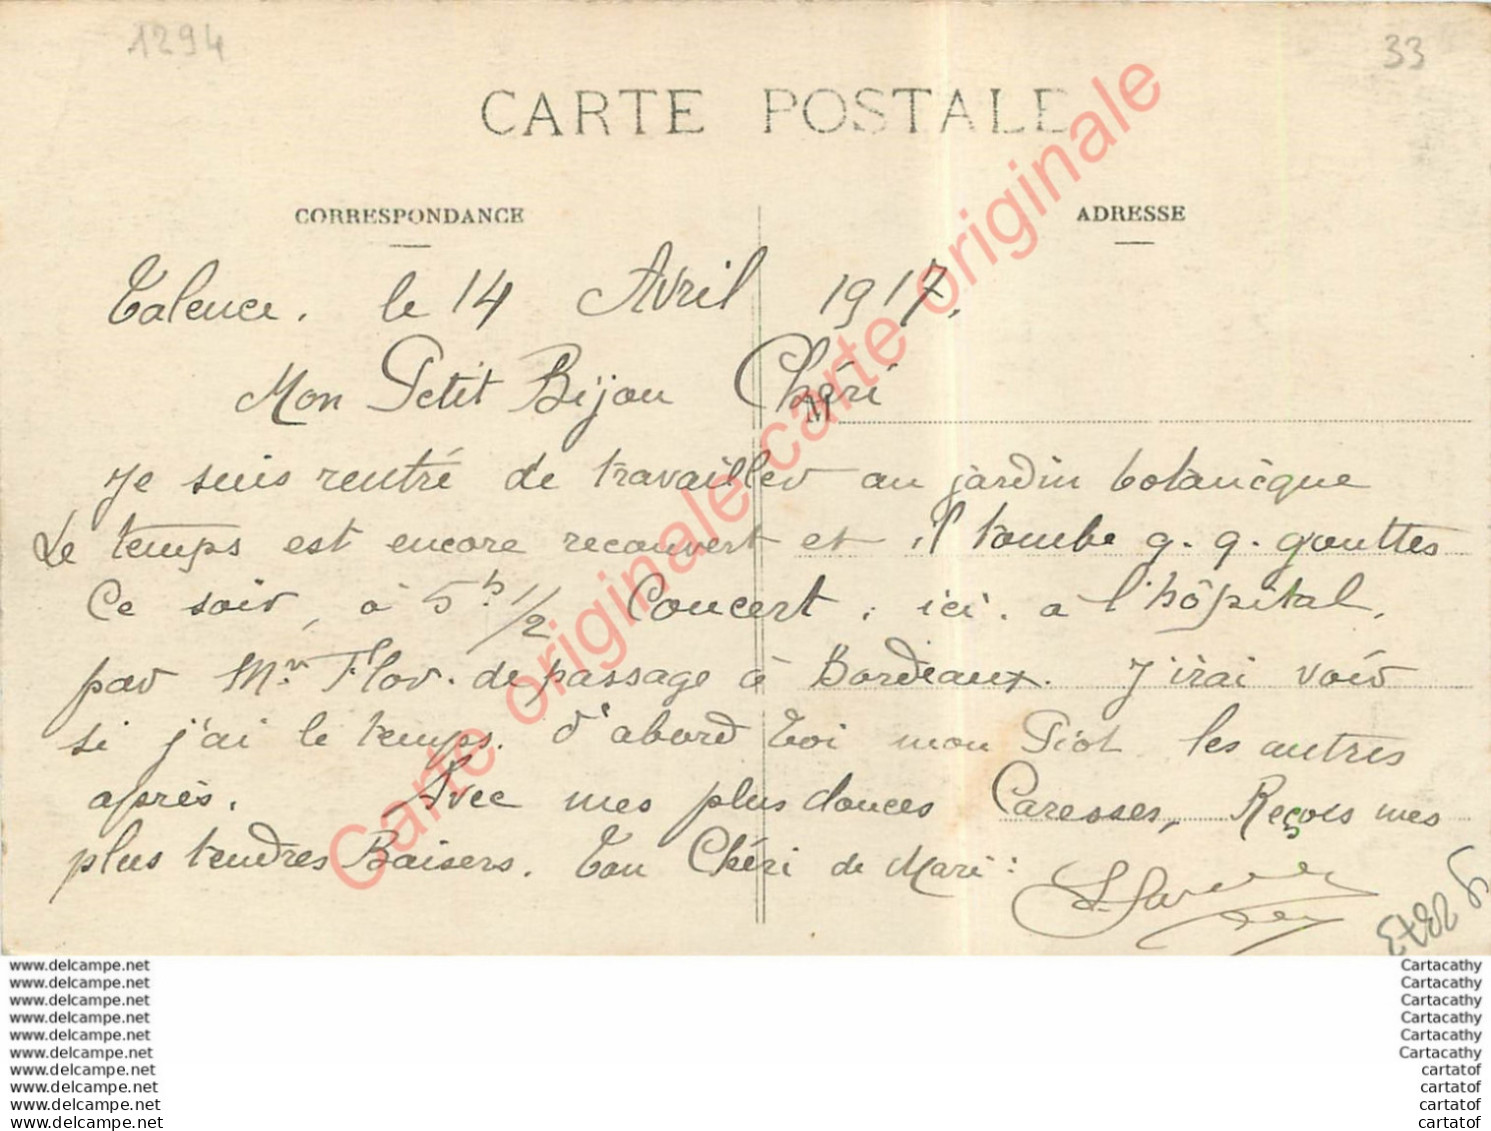 1294
33
CARTE POSTALE
CORRESPONDANCE
ADRESSE
Talence. le 14 Avril 1917.
Mon Petit Bijou Chéri
M
Je suis rentré de travailler au jardin botanicque
Le temps est encore recouvert et il tombe q. q. gouttes
Ce soir, à 5h 1/2 Concert, ici. a l'hôpital,
par Mr Flor. de passage à Bordeaux. J'irai voir
si j'ai le temps. d'abord toi mon Piot les autres
après. Avec mes plus douces Caresses, Reçois mes
plus tendres Baisers. Ton Chéri de Mari:
Carte originale carte originale
www.delcampe.net
www.delcampe.net
www.delcampe.net
www.delcampe.net
www.delcampe.net
www.delcampe.net
www.delcampe.net
www.delcampe.net
www.delcampe.net
www.delcampe.net
Cartacathy
Cartacathy
Cartacathy
Cartacathy
Cartacathy
Cartacathy
cartatof
cartatof
cartatof
cartatof